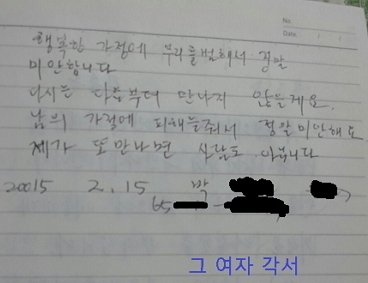 No.
Date
행복한 가정에 무리를범해서 정말
미안합니다
다시는 다음부터 만나지 않을게요.
남의 가정에 피해를줘서 정말미안해요
제가 또만나면 사람도 아닙니다
20015 2.15 박
65
그 여자 각서